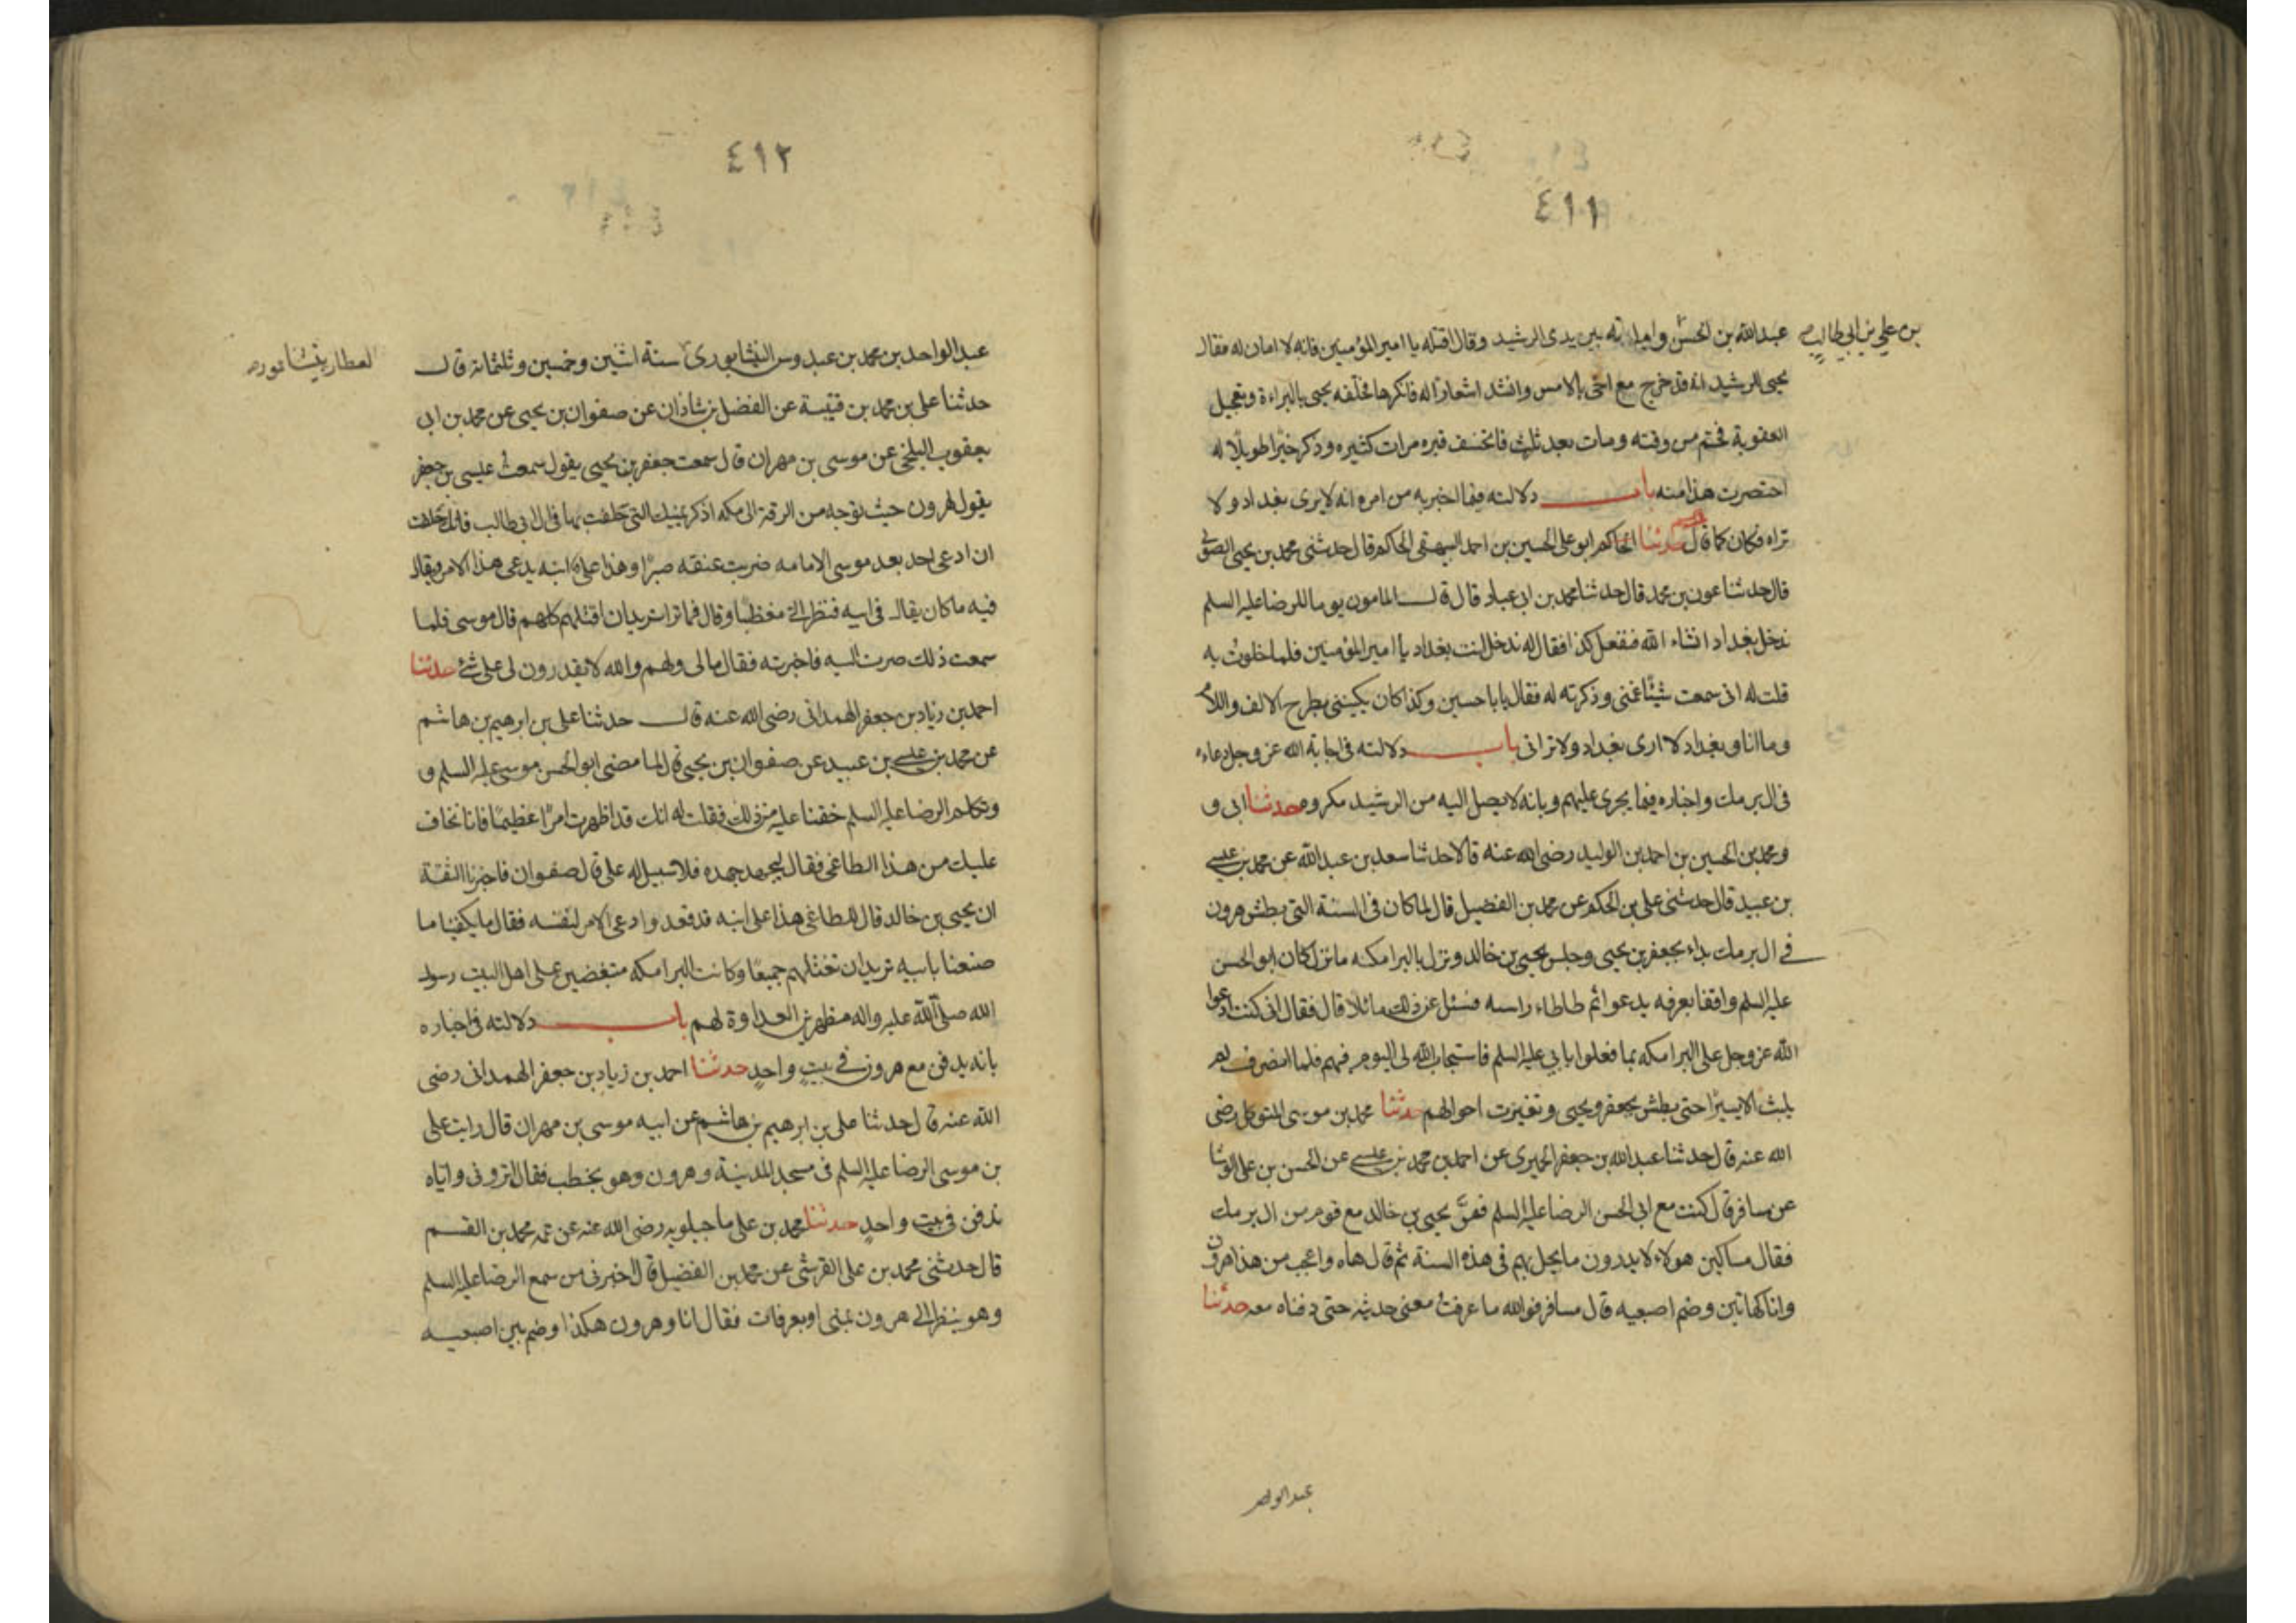 ٤١١
بن علي بن ابي طالب
عبدالله بن الحسن وامانه بين يدى الرشيد وقال اقتله يا امير المؤمنين فانه لا امان له فقال
يحيى للرشيد انه قد خرج مع اخى بالامس وانشد اشعارا له فانكرها فحلفه يحيى بالبراءة وتعجيل
العقوبة فحم من وقته ومات بعد ثلث فانخسف قبره مرات كثيره وذكر خبرا طويلا له
اختصرت هذا منه باب دلالته فيما اخبر به من امره انه لا يرى بغداد ولا
تراه فكان كما قال حدثنا الحاكم ابو على الحسين بن احمد البيهقى الحاكم قال حدثنى محمد بن يحيى الصولى
قال حدثنا عون بن محمد قال حدثنا محمد بن ابى عباد قال قال المامون يوما للرضا عليه السلم
ندخل بغداد انشاء الله فنفعل كذا فقال له تدخل انت بغداد يا امير المؤمنين فلما خلوت به
قلت له انى سمعت شيئا غمنى وذكرته له فقال يابا حسين وكذا كان يكنينى بطرح الالف واللام
وما انا وبغداد لا ارى بغداد ولا ترانى باب دلالته فى اجابة الله عز وجل دعاءه
فى ال برمك واخباره فيما يجرى عليهم وبانه لا يصل اليه من الرشيد مكروه حدثنا ابى و
ومحمد بن الحسين بن احمد بن الوليد رضى الله عنه قالا حدثنا سعد بن عبد الله عن محمد بن عيسى
بن عبيد قال حدثنى على بن الحكم عن محمد بن الفضيل قال لما كان فى السنة التى بطش هرون
فى ال برمك بداء بجعفر بن يحيى وحبس يحيى بن خالد ونزل بالبرامكه ما نزل كان ابو الحسن
عليه السلم واقفا بعرفه يدعوا ثم طاطاء راسه فسئل عن ذلك قال فقال انى كنت ادعوا
الله عز وجل على البرامكه بما فعلوا بابى عليه السلم فاستجاب الله لى اليوم فيهم فلما انصرف لم
يلبث الا يسيرا حتى بطش بجعفر ويحيى وتغيرت احوالهم حدثنا محمد بن موسى المتوكل رضى
الله عنه قال حدثنا عبد الله بن جعفر الحميرى عن احمد بن محمد بن عيسى عن الحسن بن على الوشا
عن مسافر قال كنت مع ابى الحسن الرضا عليه السلم فمر يحيى بن خالد مع قوم من ال برمك
فقال مساكين هولاء لا يدرون ما يحل بهم فى هذه السنة ثم قال هاه واعجب من هذا هرون
وانا كهاتين وضم اصبعيه قال مسافر فوالله ما عرفت معنى حديثه حتى دفناه معه حدثنا
عبد الواحد
٤١٢
عبد الواحد بن محمد بن عبدوس النيشابورى سنة اثنين وخمسين وثلثمائة قال
العطار بنيشابور
حدثنا على بن محمد بن قتيبة عن الفضل بن شاذان عن صفوان بن يحيى عن محمد بن ابى
يعقوب البلخى عن موسى بن مهران قال سمعت جعفر بن يحيى يقول سمعت عيسى بن جعفر
يقول لهرون حيث توجه من الرقة الى مكه اذكر يمينك التى حلفت بها فى ال ابى طالب فانك حلفت
ان ادعى احد بعد موسى الامامه ضربت عنقه صبرا وهذا على ابنه يدعى هذا الامر ويقال
فيه ما كان يقال فى ابيه فنظر الى مغضبا وقال فما ترا تريد ان اقتلهم كلهم قال موسى فلما
سمعت ذلك صرت اليه فاخبرته فقال مالى ولهم والله لا يقدرون لى على شئ حدثنا
احمد بن زياد بن جعفر الهمدانى رضى الله عنه قال حدثنا على بن ابرهيم بن هاشم
عن محمد بن عيسى بن عبيد عن صفوان بن يحيى قال لما مضى ابو الحسن موسى عليه السلم و
وتكلم الرضا عليه السلم خفنا عليه من ذلك فقلت له انك قد اظهرت امرا عظيما فانا نخاف
عليك من هذا الطاغى فقال ليجهد جهده فلا سبيل له على قال صفوان فاخبرنا الثقة
ان يحيى بن خالد قال للطاغى هذا على ابنه قد قعد وادعى الامر لنفسه فقال ما يكفينا ما
صنعنا بابيه تريد ان نقتلهم جميعا وكانت البرامكه متبغضين على اهل البيت رسول
الله صلى الله عليه واله مظهرين العداوة لهم باب دلالته فى اخباره
بانه يدفن مع هرون فى بيت واحد حدثنا احمد بن زياد بن جعفر الهمدانى رضى
الله عنه قال حدثنا على بن ابرهيم بن هاشم عن ابيه موسى بن مهران قال رايت على
بن موسى الرضا عليه السلم فى مسجد المدينة وهرون وهو يخطب فقال ترونى واياه
ندفن فى بيت واحد حدثنا محمد بن على ماجيلويه رضى الله عنه عن عمه محمد بن القسم
قال حدثنى محمد بن على القرشى عن محمد بن الفضيل قال اخبرنى من سمع الرضا عليه السلم
وهو ينظر الى هرون بمنى او بعرفات فقال انا وهرون هكذا وضم بين اصبعيه